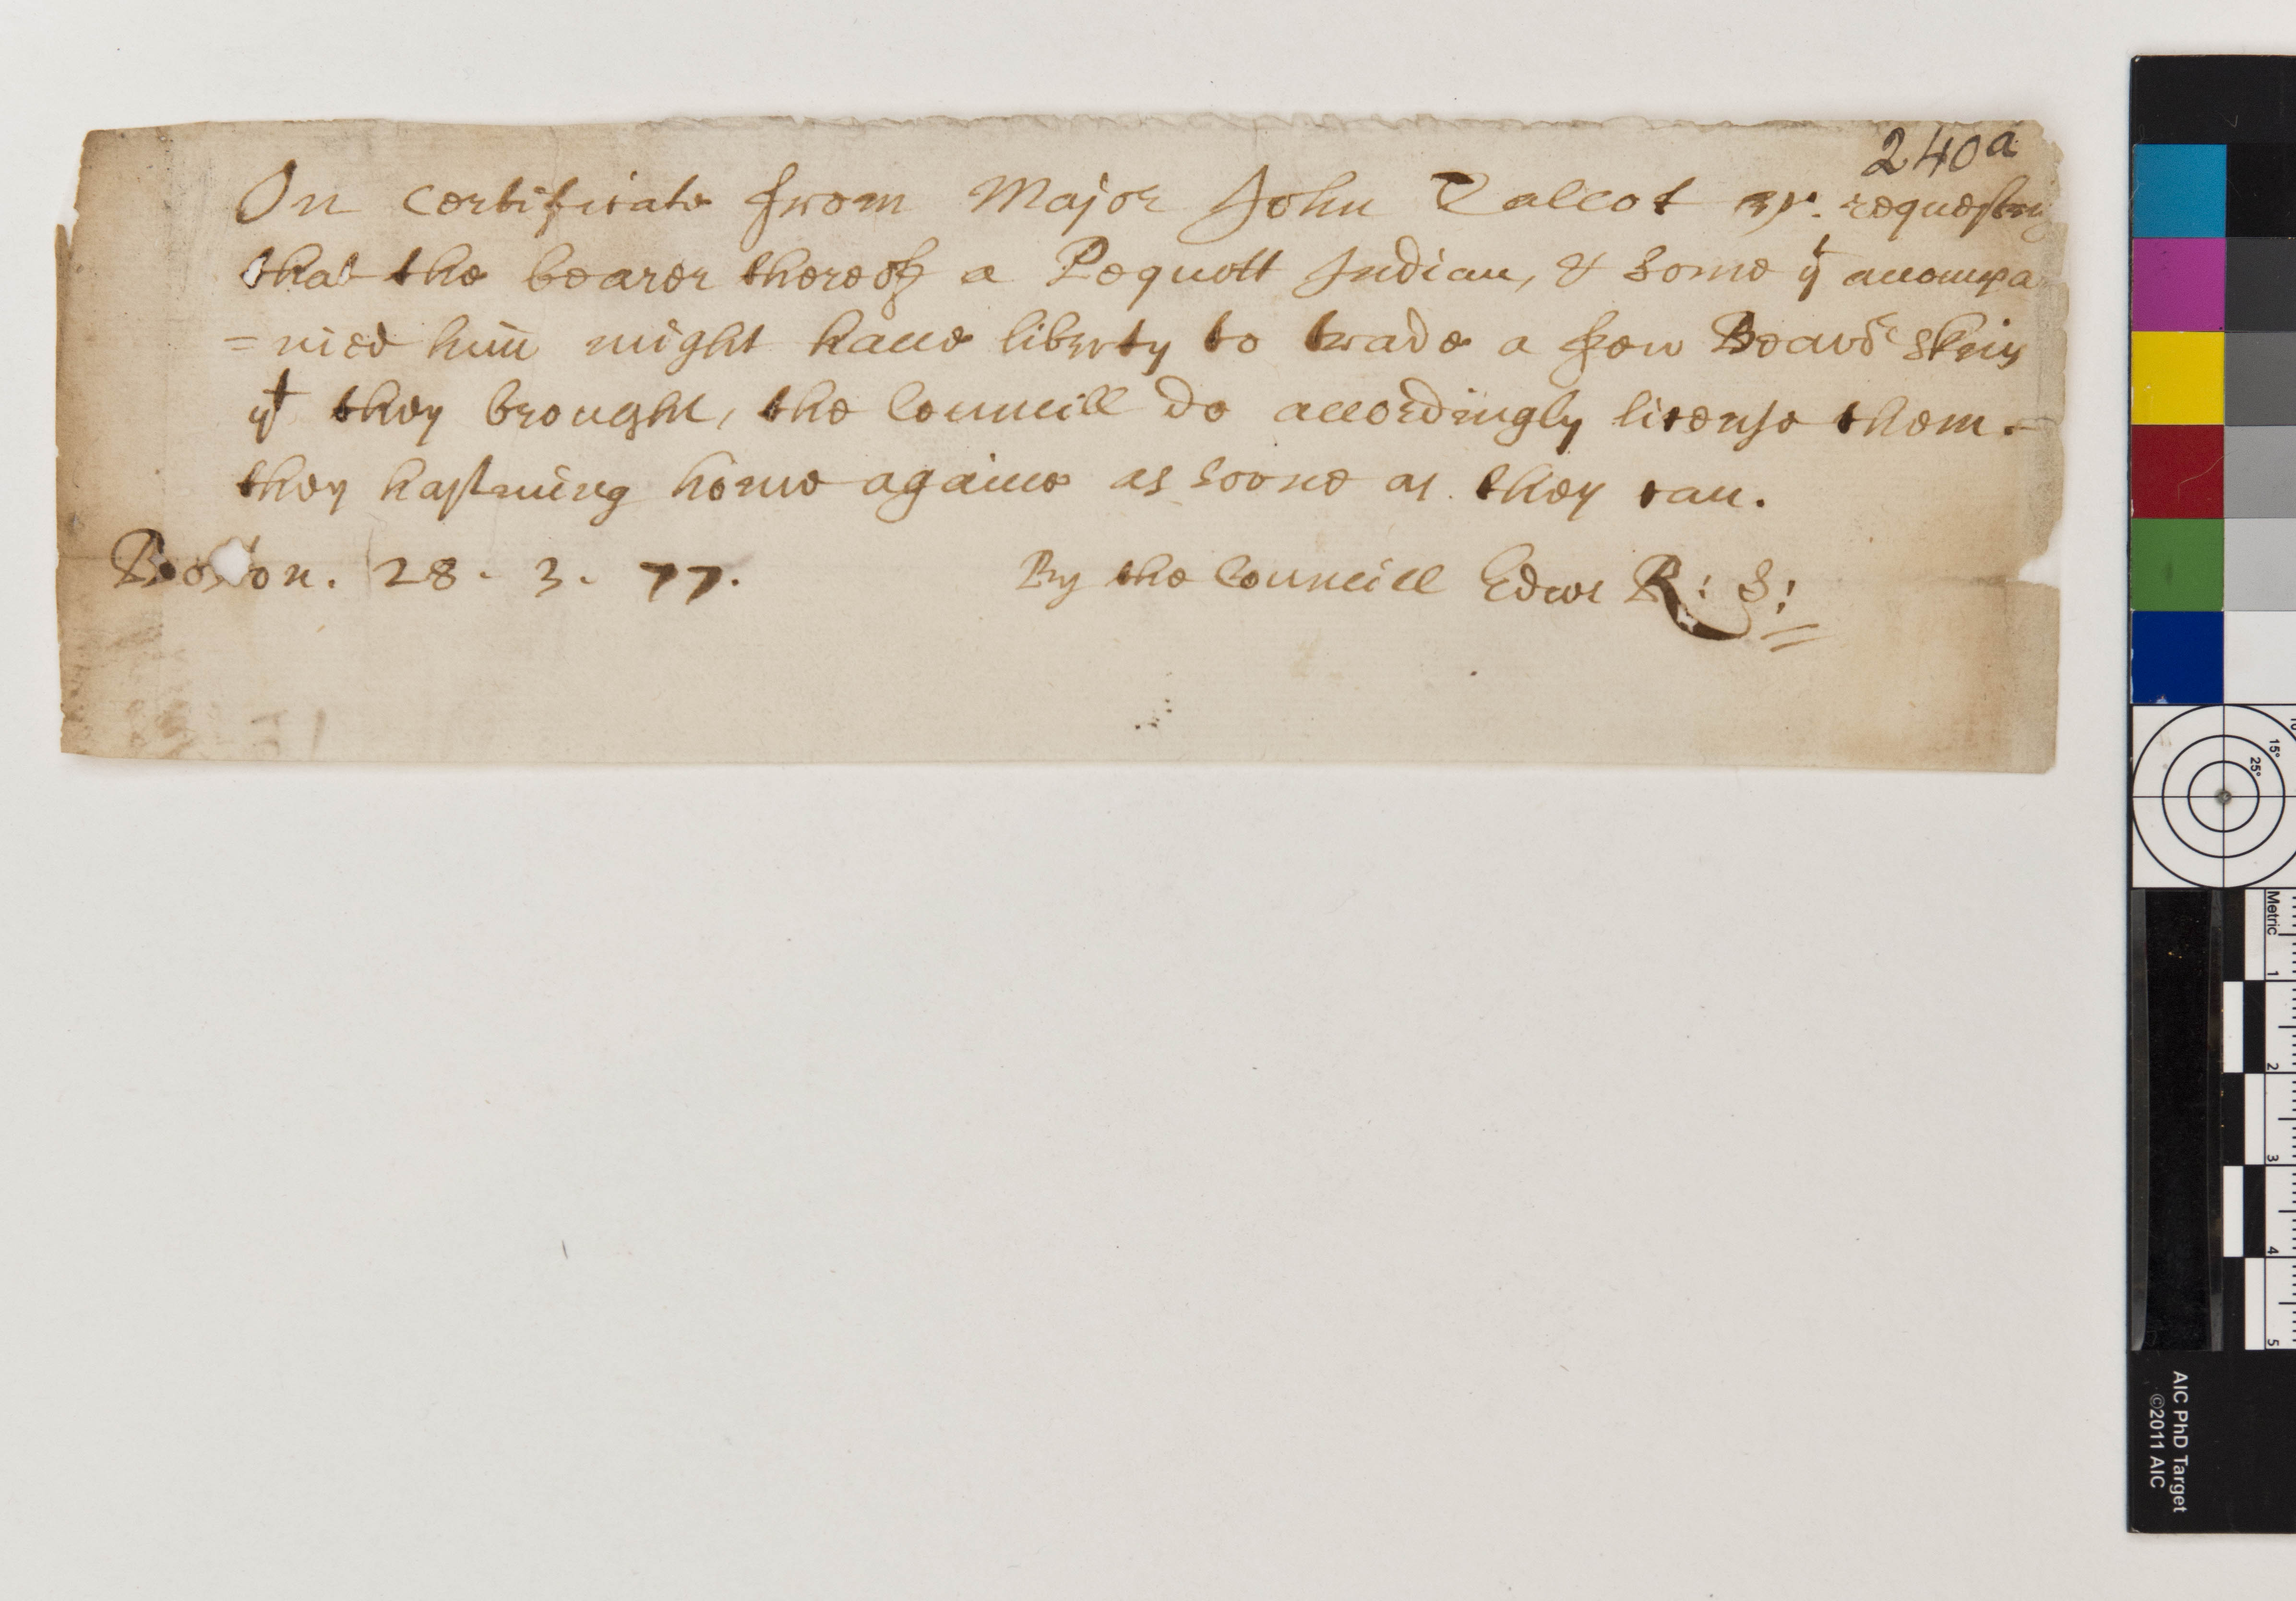 240a
On certificate from Major John Talcot requesting
that the bearer thereof a Pequott Indian, & some yt accompa
=nied him might haue liberty to trade a few Beavr skins
yt they brought, the Councill do accordingly license them.
they hastning home againe as soone as they can.
Boston. 28. 3. 77. By the Councill Edwd R: S:
15°
25°
Metric
1
2
3
4
5
AIC PhD Target
©2011 AIC